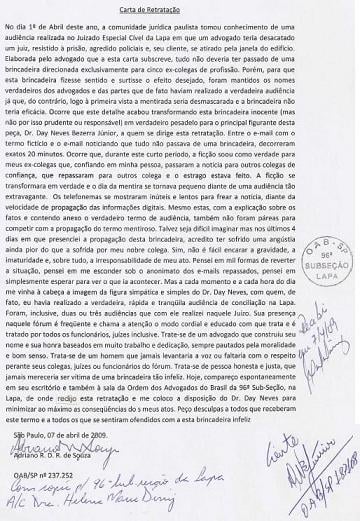 Carta de Retratação
No dia 1º de Abril deste ano, a comunidade jurídica paulista tomou conhecimento de uma
audiência realizada no Juizado Especial Cível da Lapa em que um advogado teria desacatado
um juiz, resistido à prisão, agredido policiais e, seu cliente, se atirado pela janela do edifício.
Elaborada pelo advogado que a esta carta subscreve, tudo não deveria ter passado de uma
brincadeira direcionada exclusivamente para cinco ex-colegas de profissão. Porém, para que
esta brincadeira fizesse sentido e surtisse o efeito desejado, foram mantidos os nomes
verdadeiros dos advogados e das partes que de fato haviam realizado a verdadeira audiência
já que, do contrário, logo à primeira vista a mentirada seria desmascarada e a brincadeira não
teria eficácia. Ocorre que este detalhe acabou transformando esta brincadeira inocente (mas
não por isso prudente ou responsável) em verdadeiro pesadelo para o principal figurante desta
peça, Dr. Day Neves Bezerra Júnior, a quem se dirige esta retratação. Entre o e-mail com o
termo fictício e o e-mail noticiando que tudo não passava de uma brincadeira, decorreram
exatos 20 minutos. Ocorre que, durante este curto período, a ficção soou como verdade para
meus ex-colegas que, confiando em minha pessoa, passaram a notícia para outros colegas de
confiança, que repassaram para outros colegas e o estrago estava feito. A ficção se
transformara em verdade e o dia da mentira se tornava pequeno diante de uma audiência tão
extravagante. Os telefonemas se mostraram inúteis e lentos para frear a notícia, diante da
velocidade de propagação das informações digitais. Mesmo estas, com a explicação sobre os
fatos e contendo anexo o verdadeiro termo de audiência, também não foram páreas para
competir com a propagação do termo mentiroso. Talvez seja difícil imaginar mas nos últimos 4
dias em que presenciei a propagação desta brincadeira, acredito ter sofrido uma angústia
ainda pior do que a sofrida por meu nobre colega. Sim, não é fácil encarar a gravidade, a
imaturidade e, sobre tudo, a irresponsabilidade de meu ato. Pensei em mil formas de reverter
a situação, pensei em me esconder sob o anonimato dos e-mails repassados, pensei em
simplesmente esperar para ver o que ia acontecer. Mas a cada momento e a cada hora do dia
me vinha à cabeça a imagem da figura simpática e simples do Dr. Day Neves, com quem, de
fato, eu havia realizado a verdadeira, rápida e tranquila audiência de conciliação na Lapa.
Foram, inclusive, duas ou três audiências que com ele realizei naquele Juízo. Sua presença
naquele fórum é freqüente e chama a atenção o modo cordial e educado com que trata e é
tratado por todos os funcionários, juízes inclusive. Trata-se de um advogado que construiu seu
nome e sua honra baseados em muito trabalho e dedicação, sempre pautados pela moralidade
e bom senso. Trata-se de um homem que jamais levantaria a voz ou faltaria com o respeito
perante seus colegas, juízes ou funcionários do fórum. Trata-se de pessoa honesta e justa, que
jamais mereceria ser vítima de uma brincadeira tão infeliz. Hoje, compareço espontaneamente
em seu escritório e também à sala da Ordem dos Advogados do Brasil da 96ª Sub-Seção, na
Lapa, de onde redijo esta retratação e me coloco a disposição do Dr. Day Neves para
minimizar ao máximo as conseqüências do s meus atos. Peço desculpas a todos que receberam
este termo e a todos os que se sentiram ofendidos com a esta brincadeira infeliz
São Paulo, 07 de abril de 2009.
Adriano R. D. R. de Souza
OAB/SP nº 237.252
Com cópia p/ 96ª Sub-seção da Lapa
A/C Dra. Helena Maria Diniz
OAB - SP
96ª
SUBSEÇÃO
LAPA
Recebi
Ciente
OAB/SP